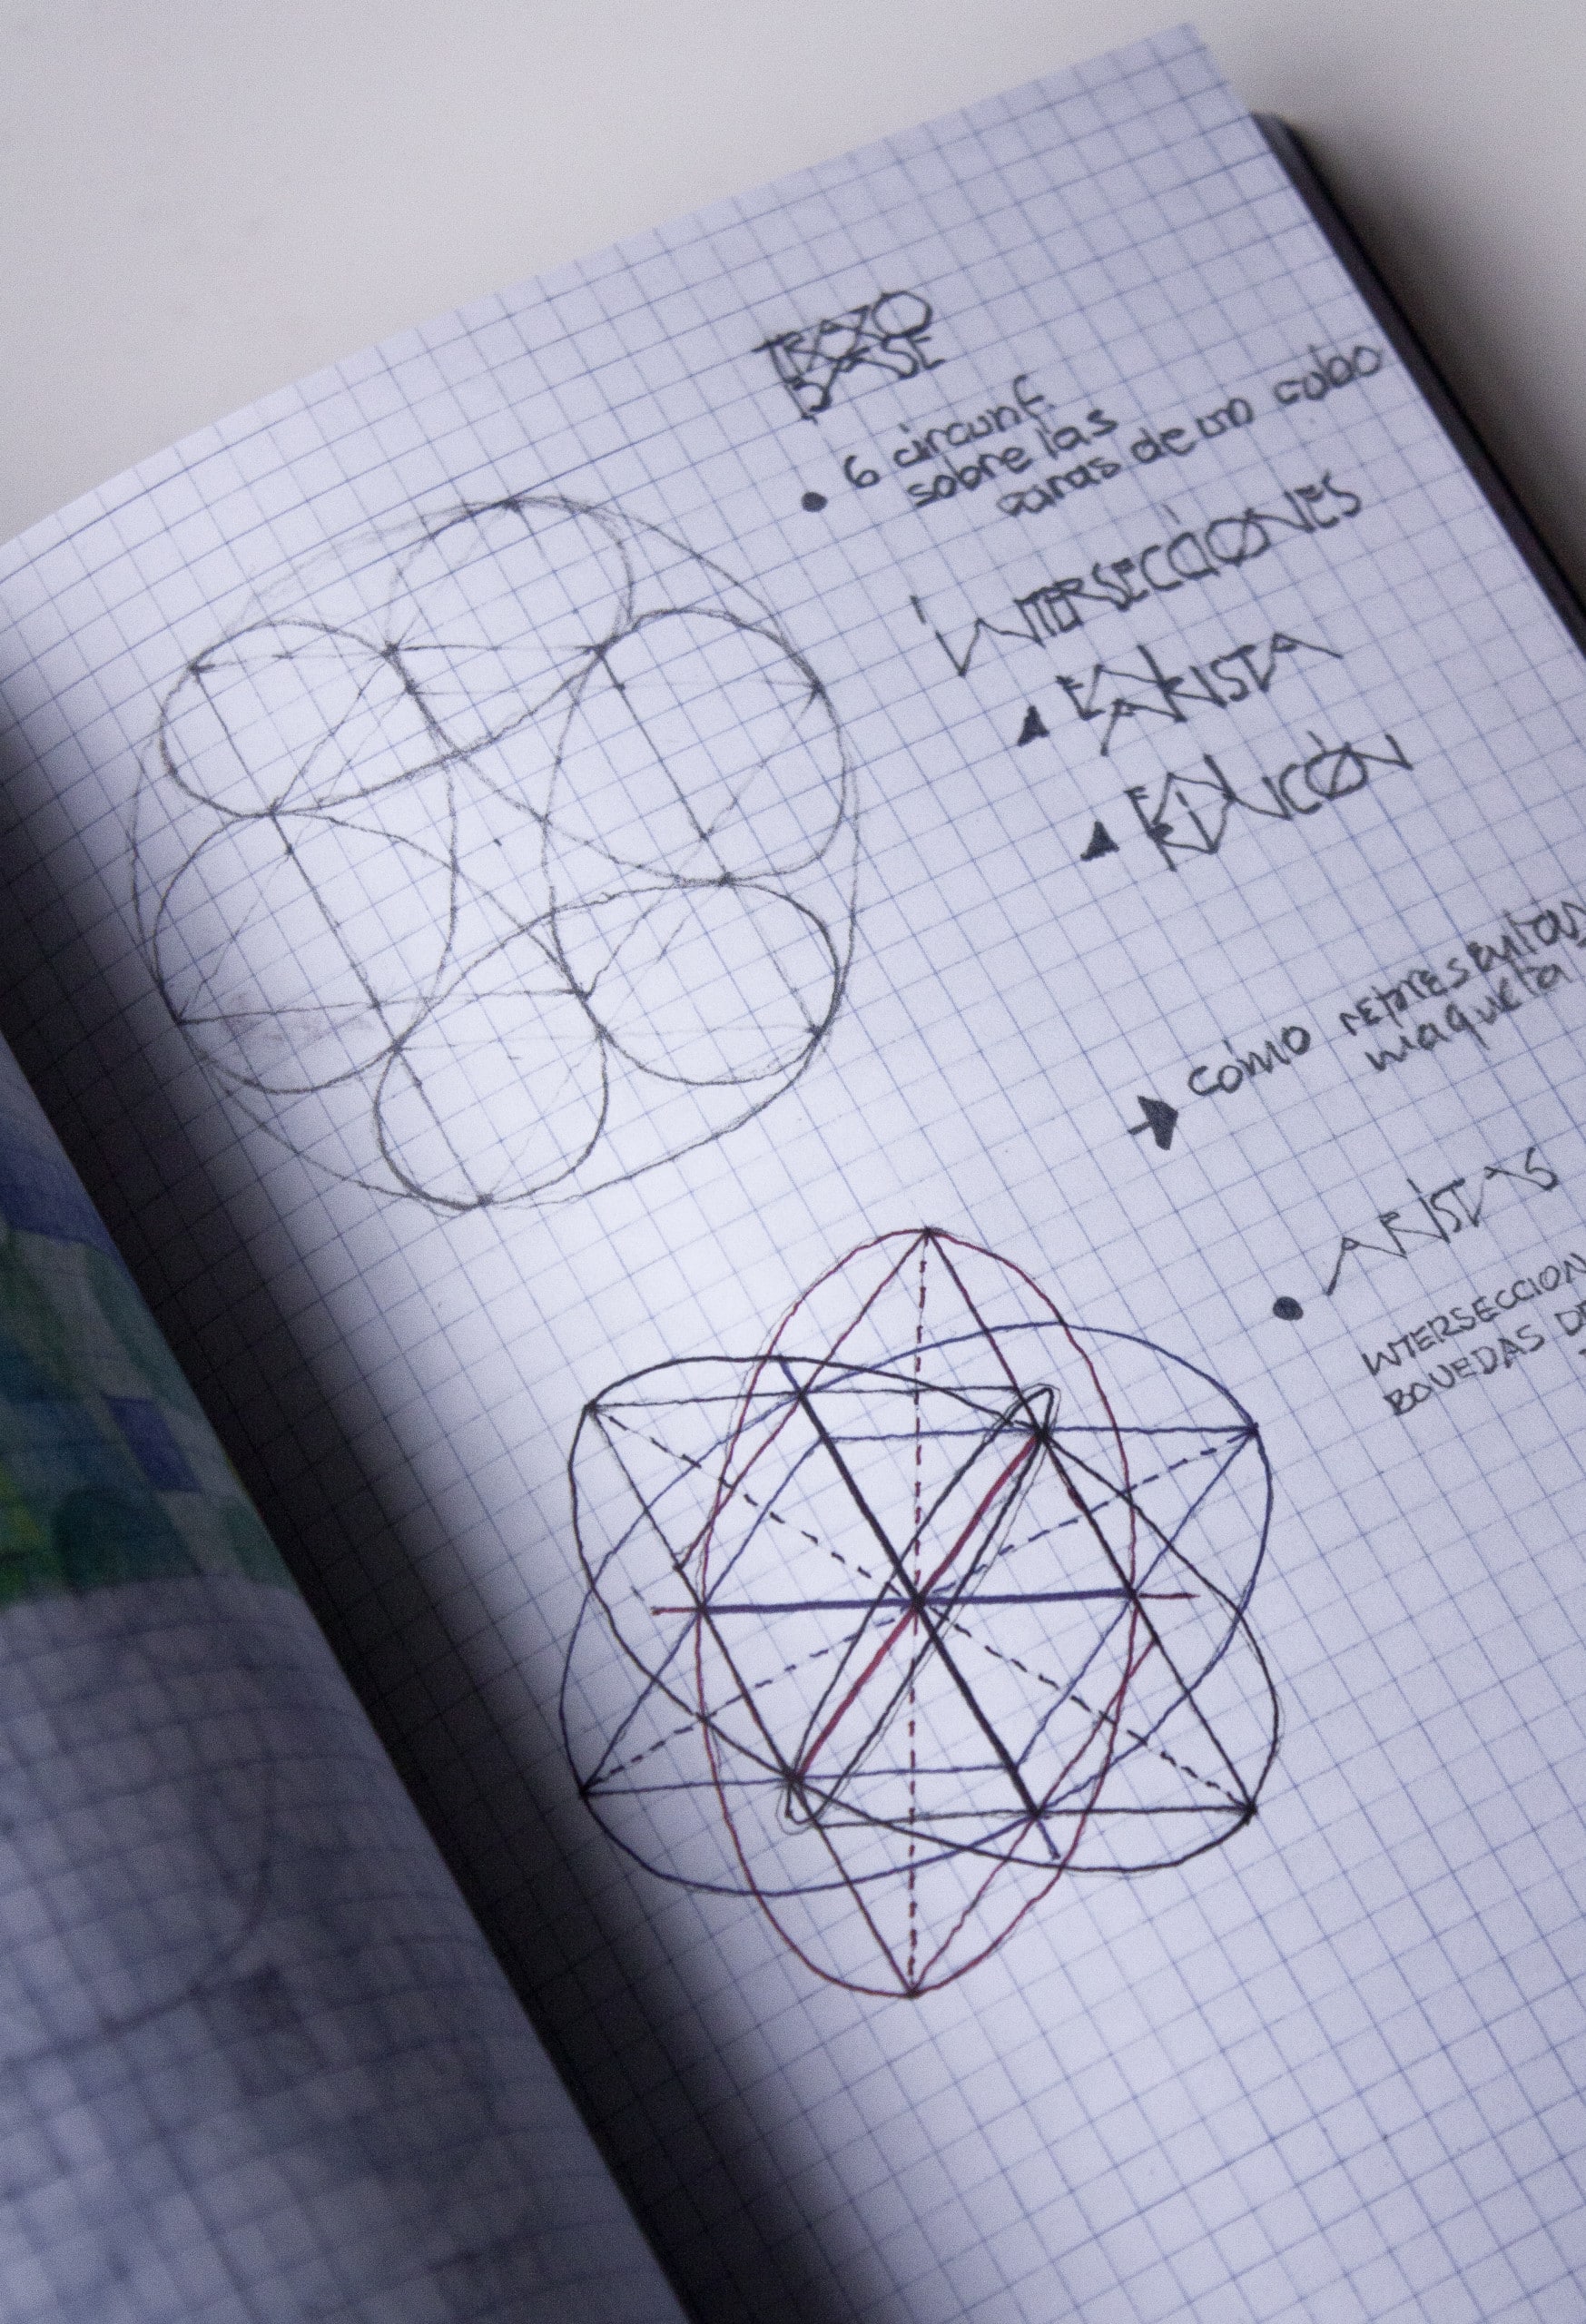 TRAZO
BASE
6 circunf.
sobre las
caras de un cubo
INTERSECCIONES
EN ARISTA
EN RINCÓN
cómo representar
maqueta
ARISTAS
INTERSECCION
BOVEDAS DE